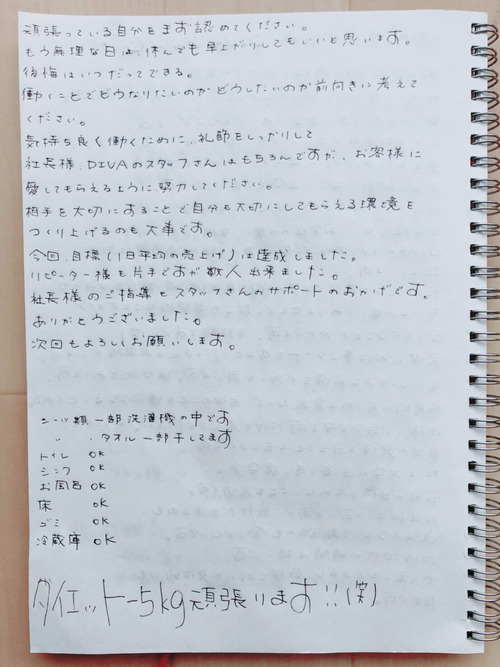 頑張っている自分をまず認めてください。
もう無理な日は、休んでも早上がりしてもいいと思います。
後悔はいつだってできる。
働くことでどうなりたいのかどうしたいのか前向きに考えて
ください。
気持ち良く働くために、礼節をしっかりして
社長様、DIVAのスタッフさんはもちろんですが、お客様に
愛してもらえるように努力してください。
相手を大切にすることで自分も大切にしてもらえる環境を
つくり上げるのも大事です。
今回、目標(1日平均の売上げ)は達成しました。
リピーター様も片手ですが数人出来ました。
社長様のご指導とスタッフさんのサポートのおかげです。
ありがとうございました。
次回もよろしくお願いします。
シーツ類一部洗濯機の中です
〃 ・タオル一部干してます
トイレ OK
シンク OK
お風呂 OK
床 OK
ゴミ OK
冷蔵庫 OK
ダイエット-5kg頑張ります!!(笑)